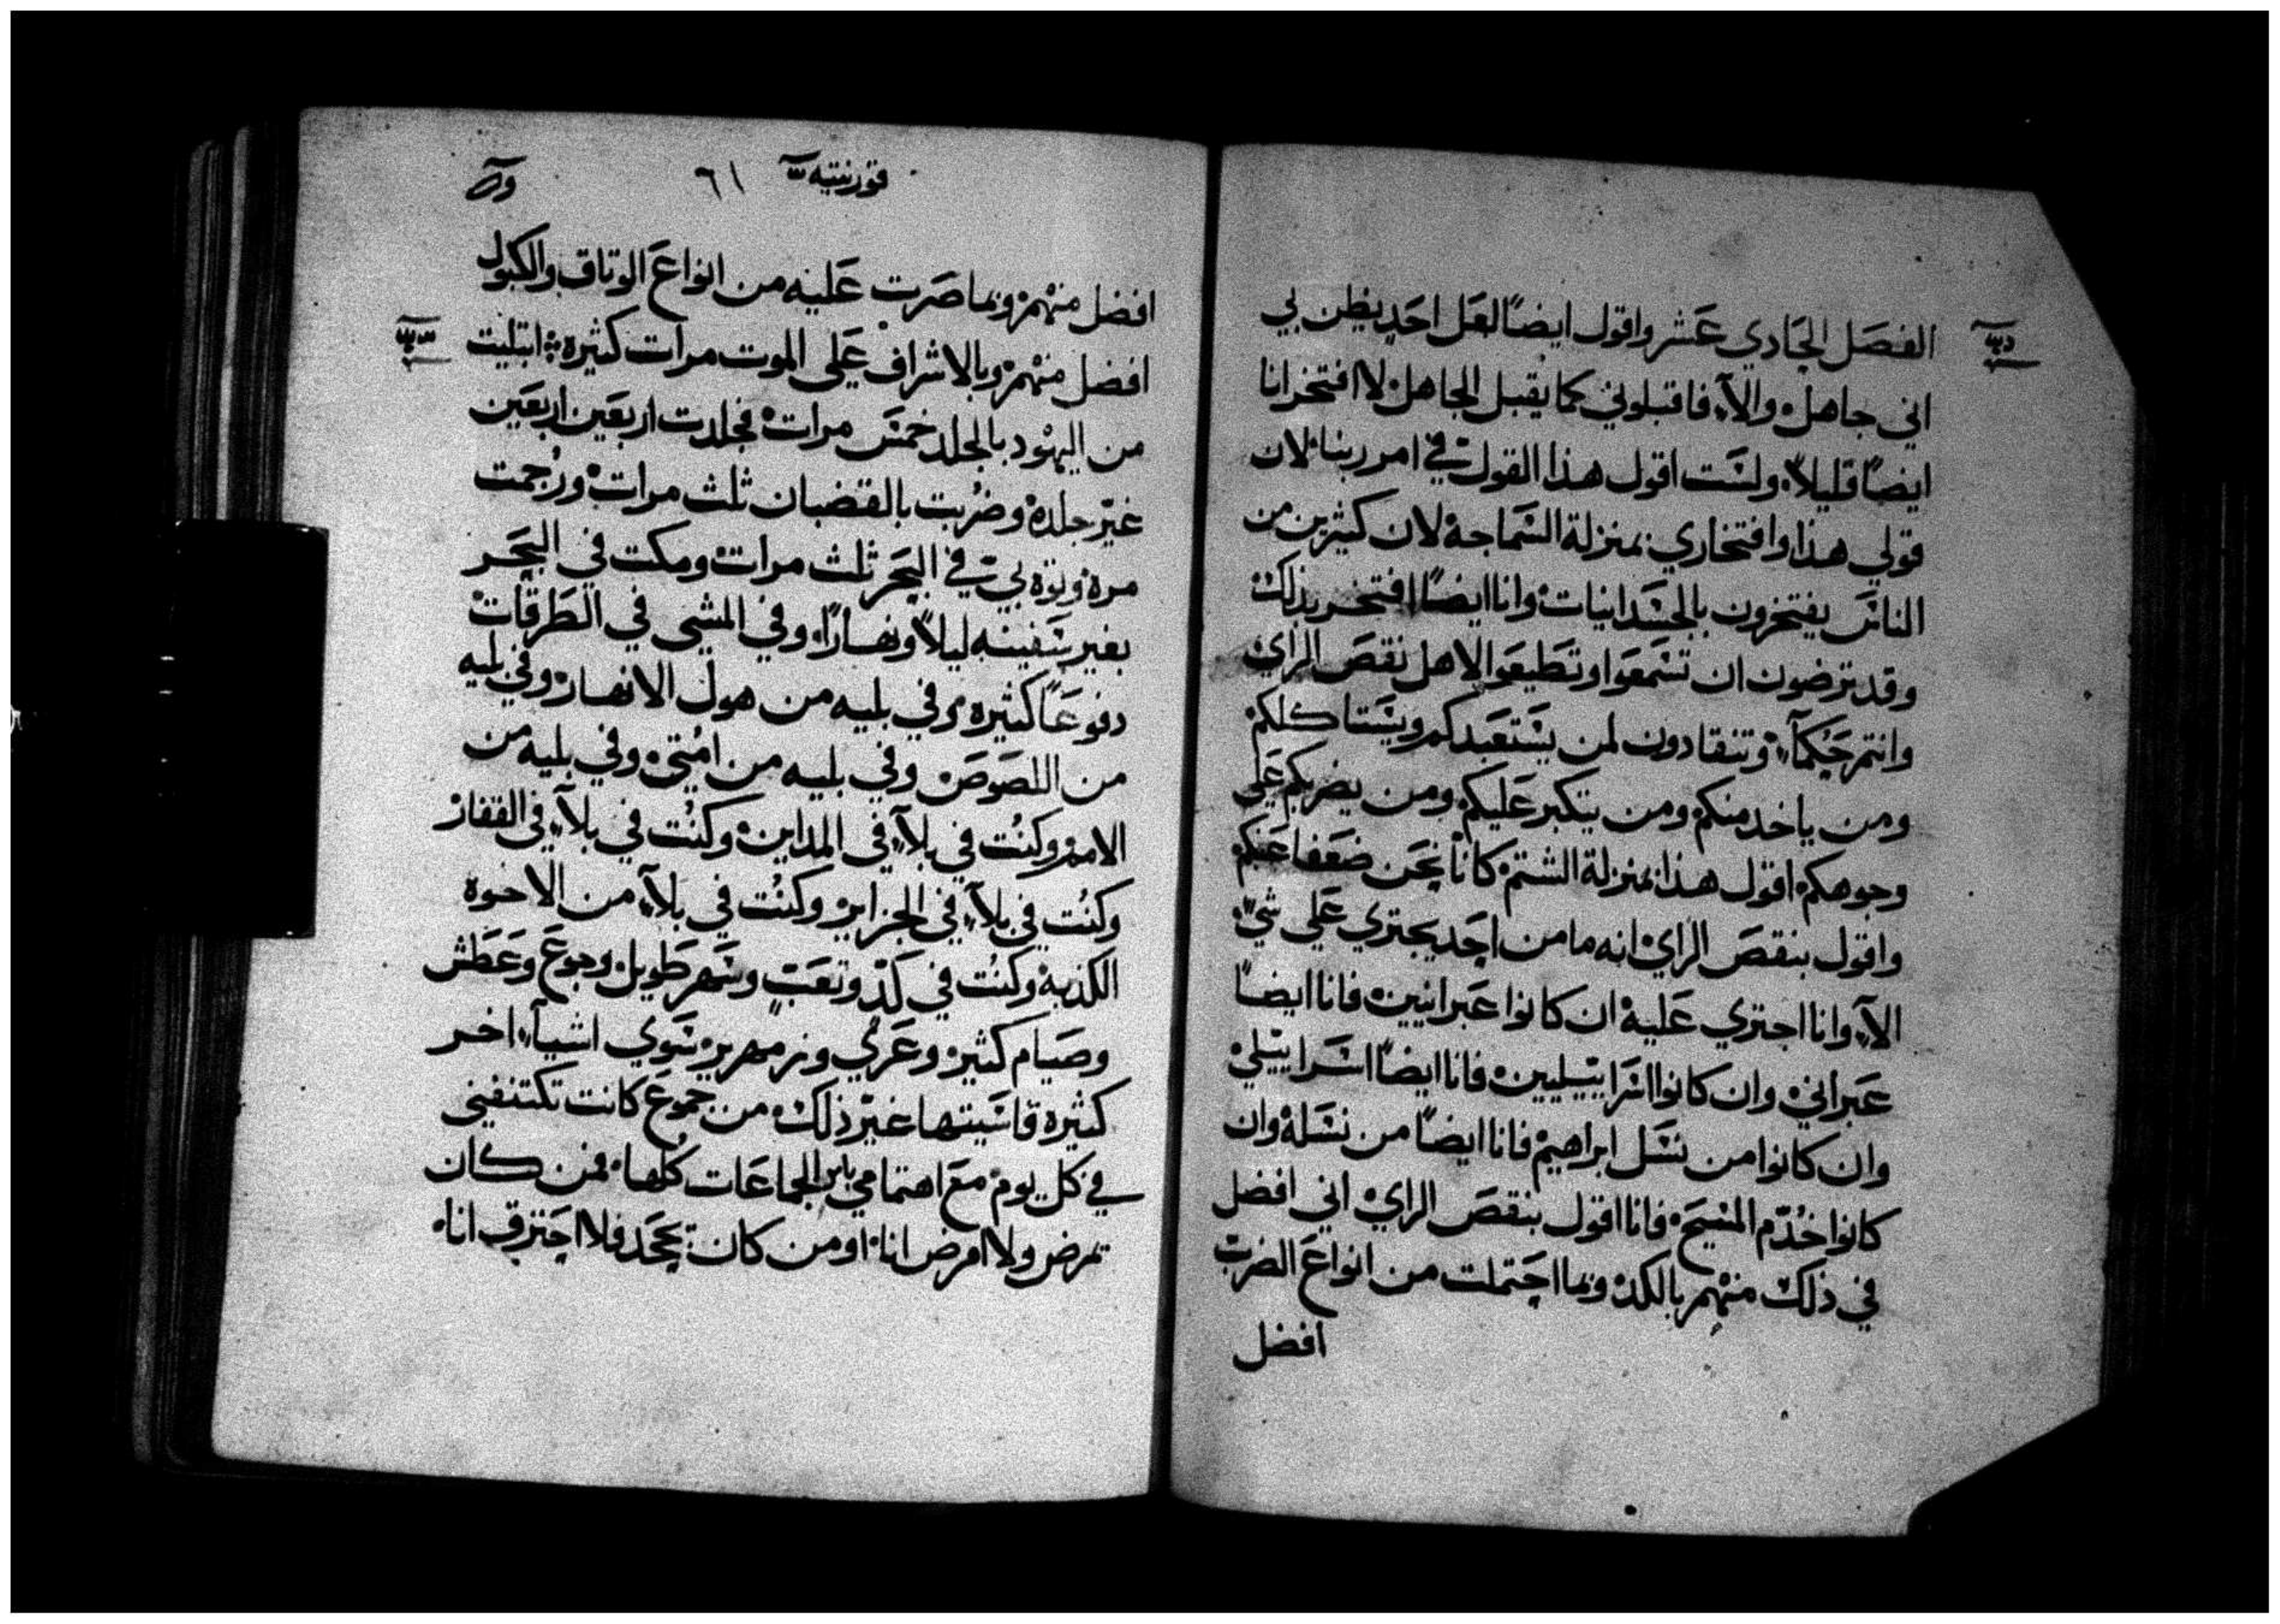 الفصل الحادي عشر واقول ايضًا لعل احد يظن بي
اني جاهل والآء فاقبلوني كما يقبل الجاهل لا افتخر انا
ايضًا قليلاً ولست اقول هذا القول في امر ربنا لان
قولي هذا وافتخاري بمنزلة السماجة لان كثيرين من
الناس يفتخرون بالجسدانيات وانا ايضًا افتخر بذلك
وقد ترضون ان تسمعوا وتطيعوا لاهل نقص الراي
وانتم حكمآء وتنقادون لمن يستعبدكم ويستاكلكم
ومن ياخد منكم ومن يتكبر عليكم ومن يضربكم علي
وجوهكم اقول هذا بمنزلة الشتم كانا نحن ضعفا عنكم
واقول بنقص الراي انه ما من احد يجتري علي شي
الآء وانا اجتري عليه ان كانوا عبرانيين فانا ايضًا
عبراني وان كانوا اسراييليين فانا ايضًا اسراييلي
وان كانوا من نسل ابراهيم فانا ايضًا من نسله وان
كانوا خُدّم المسيح فانا اقول بنقص الراي اني افضل
في ذلك منهم بالكد وبما احتملت من انواع الضرب
افضل
قورنتيه ٦١
افضل منهم وبما صرت عليه من انواع الوتاق والكبول
افضل منهم وبالاشراف علي الموت مرات كثيره ابتليت
من اليهود بالجلد خمس مرات فجلدت اربعين اربعين
غير جلده وضُربت بالقضبان ثلث مرات ورُجمت
مره وتوه بي في البحر ثلث مرات ومكت في البحر
بغير سفينه ليلاً ونهارًا وفي المشي في الطرقات
دفوعًا كثيره وفي بليه من هول الانهار وفي بليه
من اللصوص وفي بليه من امُتي وفي بليه من
الامم وكنُت في بلآء في المداين وكنُت في بلآء في القفار
وكنُت في بلآء في الجزاير وكنُت في بلآء من الاخوه
الكذبة وكنُت في كدّ وتعب وسهر طويل وجوع وعطش
وصيام كثير وعري وزمهرير سوي اشيآء اخر
كثيره قاسيتها غير ذلك من جموع كانت تكتنفني
في كل يوم مع اهتمامي بامر الجماعات كُلها فمن كان
تمرض ولا امرض انا او من كان يجحد فلا احترق انا